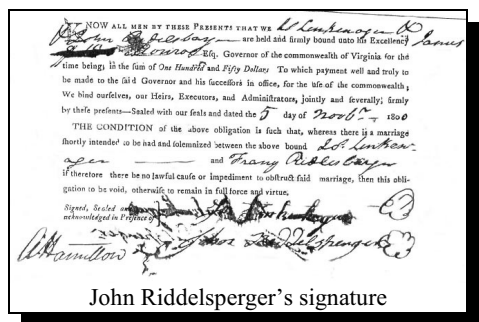 KNOW ALL MEN BY THESE PRESENTS THAT WE
John are held and firmly bound unto his Excellency James
Monroe Esq. Governor of the commonwealth of Virginia for the
time being; in the sum of One Hundred and Fifty Dollars To which payment well and truly to
be made to the said Governor and his successors in office, for the use of the commonwealth;
We bind ourselves, our Heirs, Executors, and Administrators, jointly and severally, firmly
by these presents—Sealed with our seals and dated the 5 day of Novbr 1800
THE CONDITION of the above obligation is such that, whereas there is a marriage
shortly intended to be had and solemnized between the above bound Linken-
ager and Frany Riddlesbarger
if therefore there be no lawful cause or impediment to obstruct said marriage, then this obli-
gation to be void, otherwise to remain in full force and virtue.
Signed, Sealed and
acknowledged in Presence of
A Hamilton
John Riddelsperger’s signature